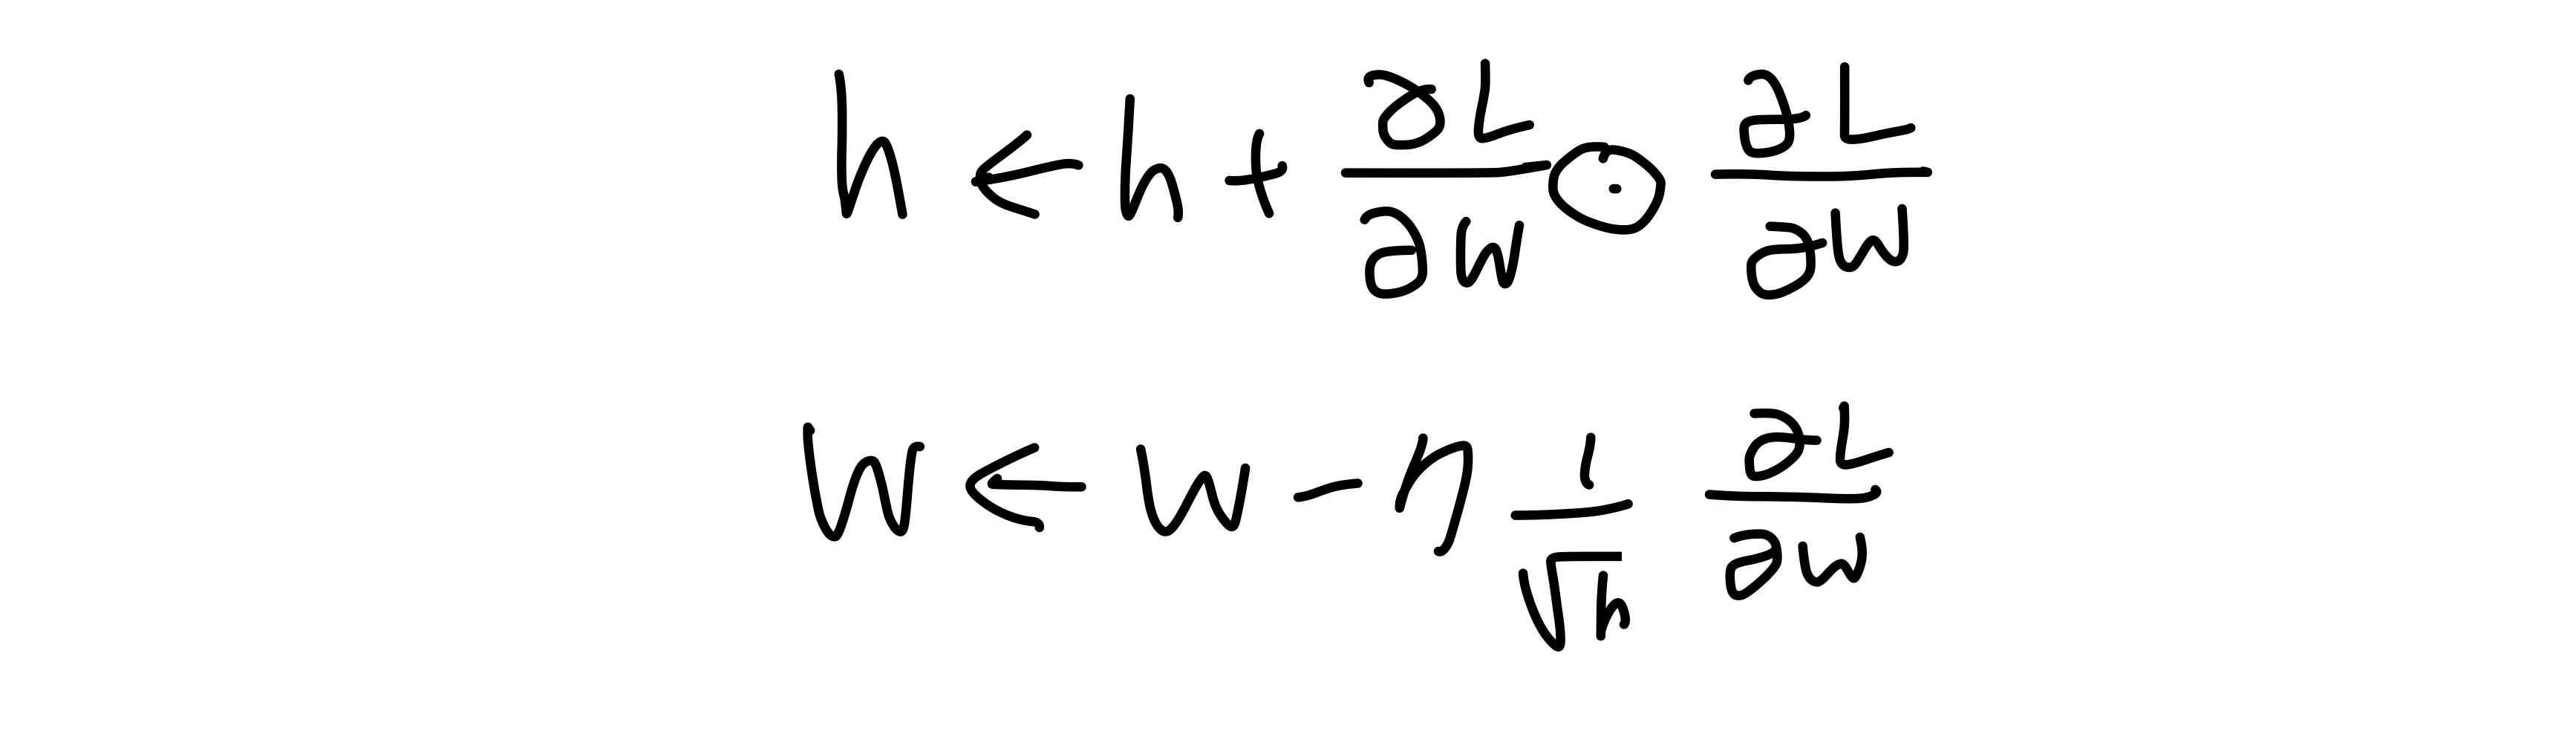 h ← h + ∂L/∂W ⊙ ∂L/∂W
W ← W - η 1/√h ∂L/∂W